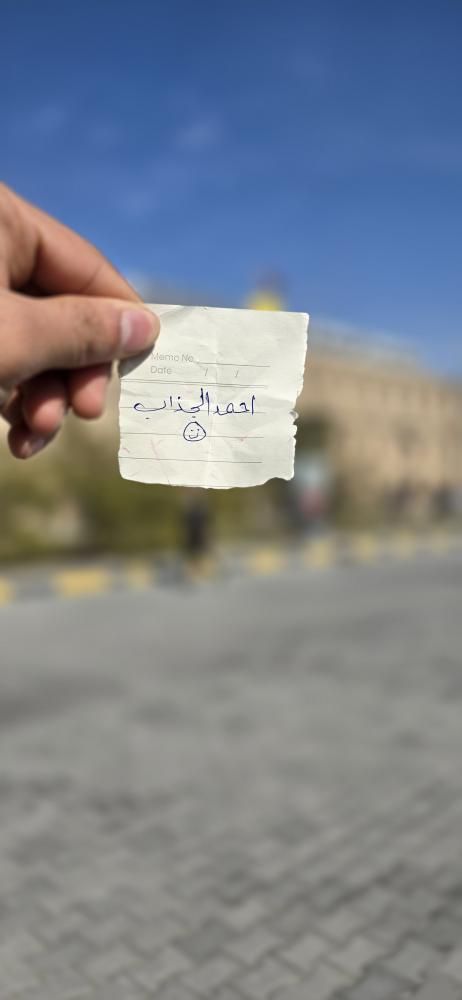 Memo No
Date / /
احمد الجذاب